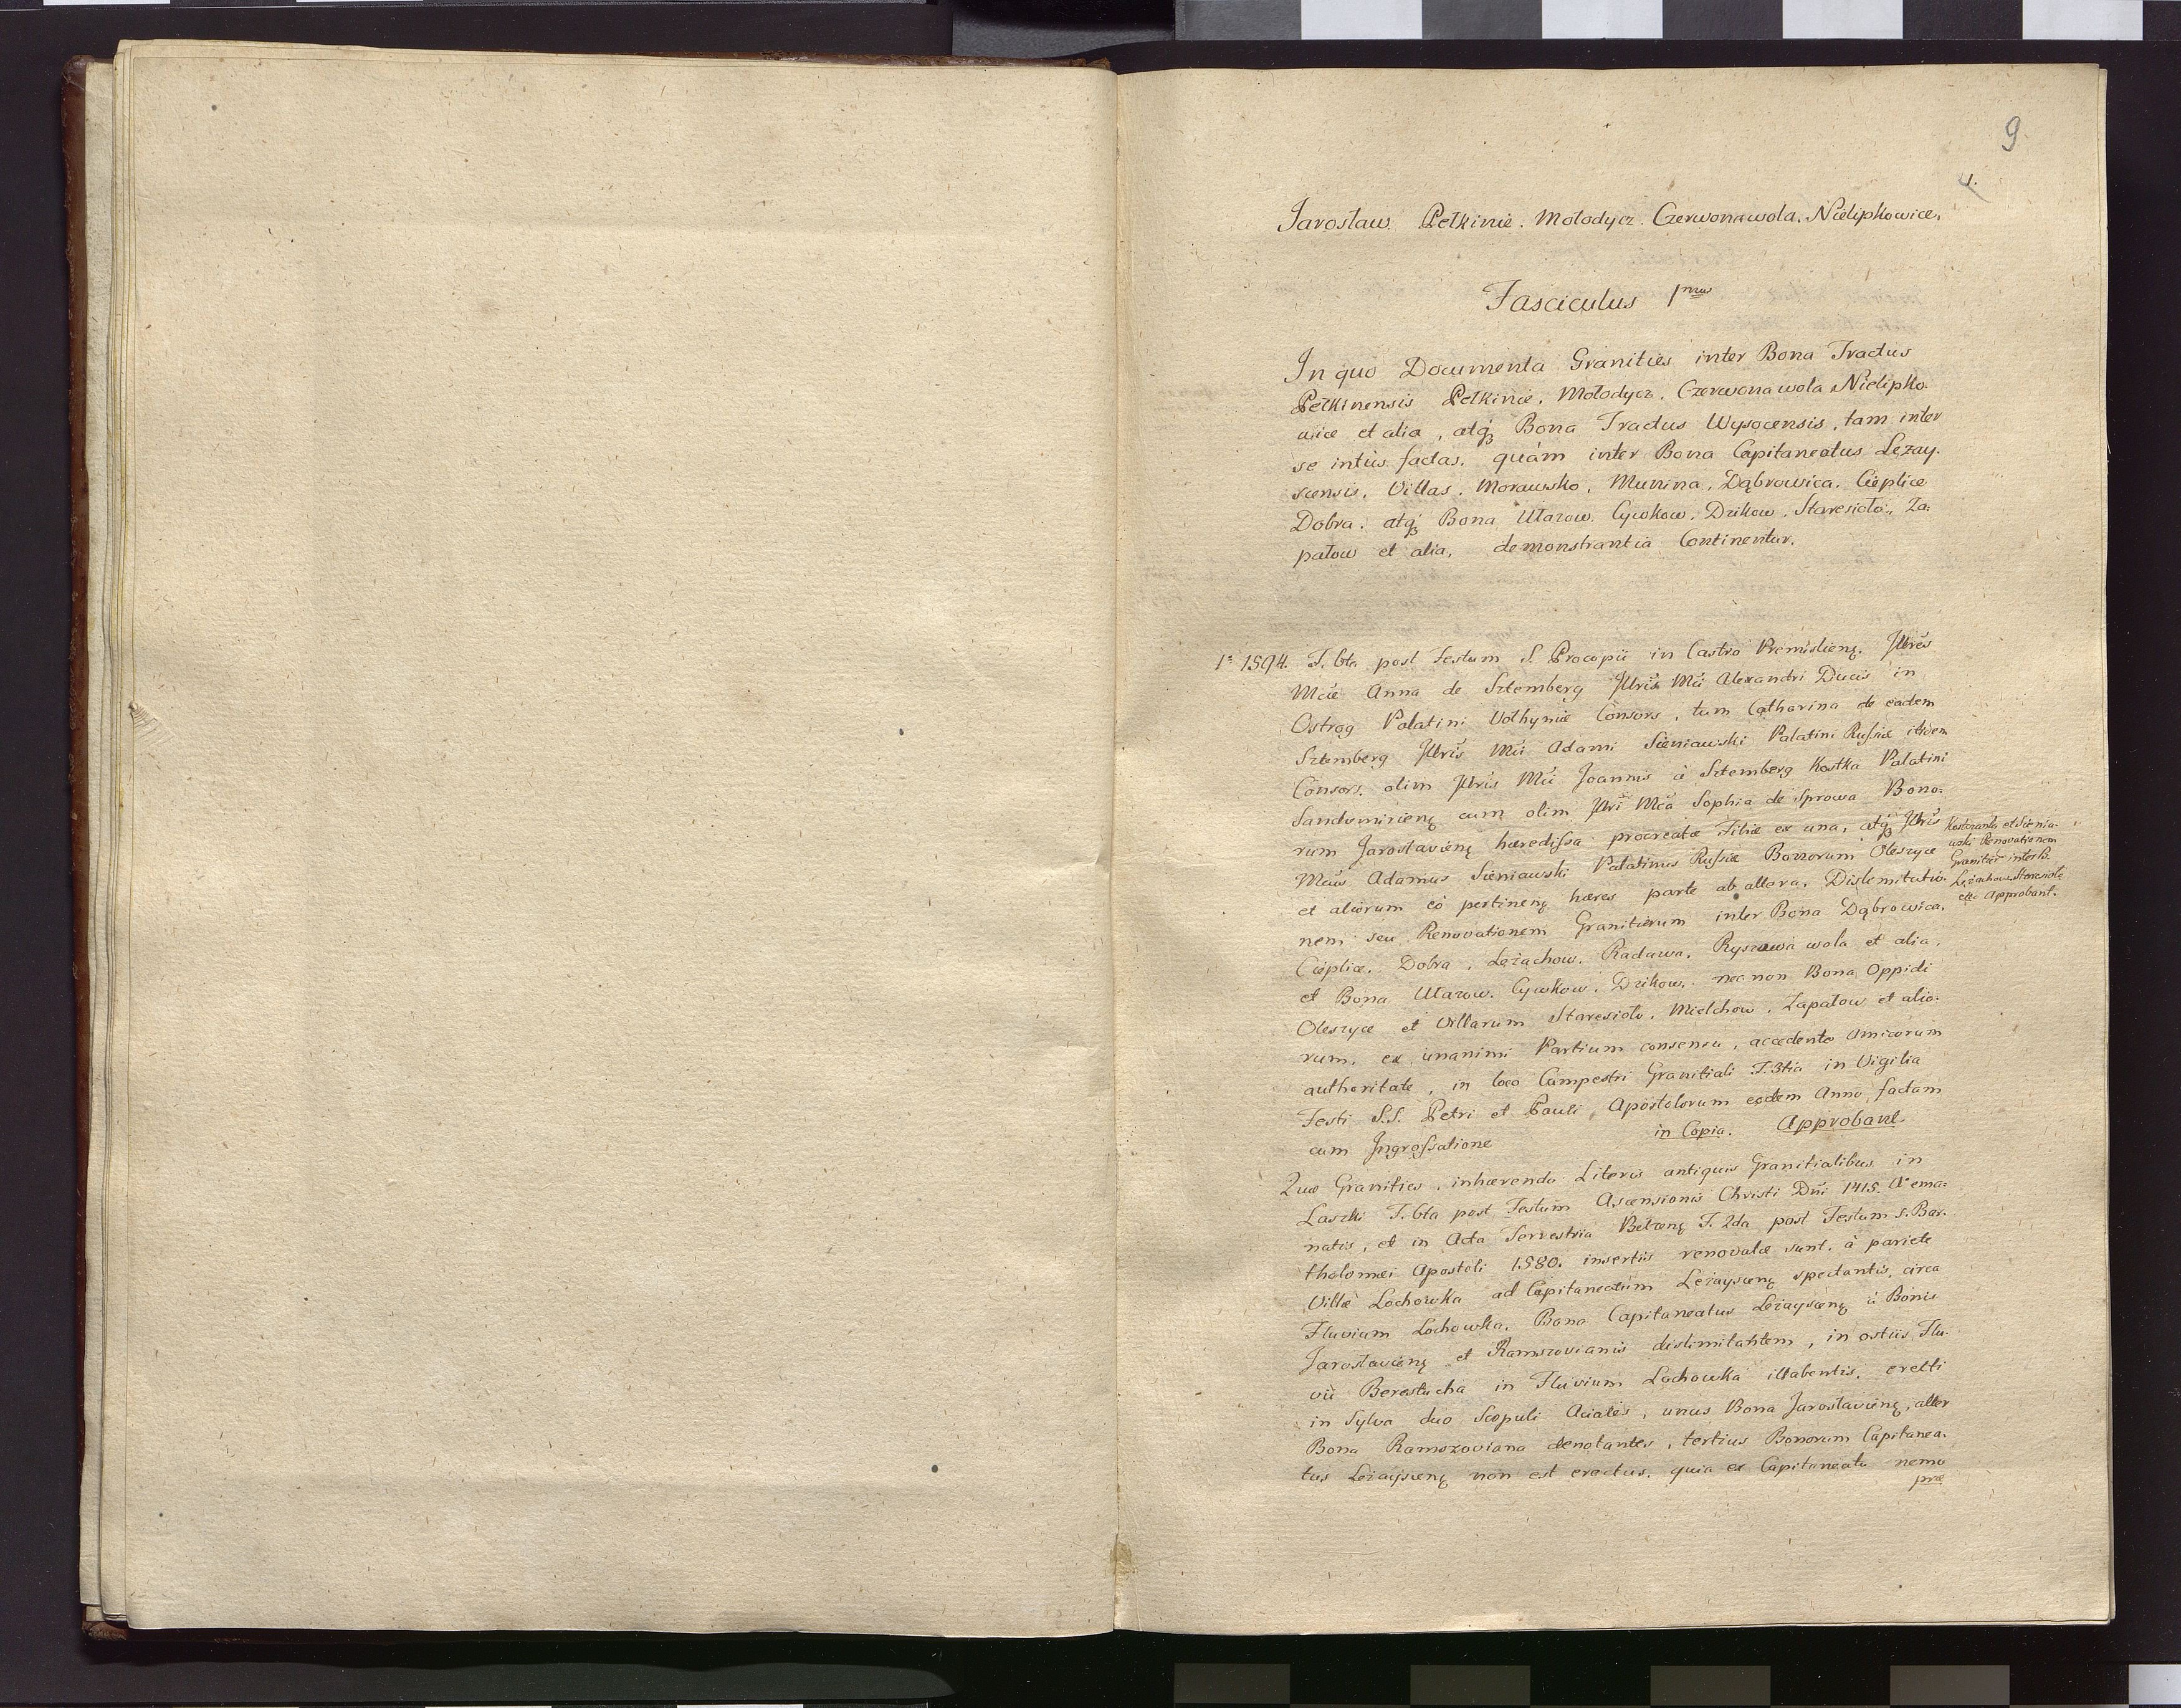 9
4.
Jarosław. Pełkinie. Mołodycz. Czerwonawola. Nielipkowice.
Fasciculus 1mus
In quo Documenta Granities inter Bona Tractus
Pełkinensis Pełkinie. Mołodycz. Czerwonawola Nielipko-
wice et alia, atq; Bona Tractus Wysocensis, tam inter
se intùs factas. quàm inter Bona Capitaneatus Leżay-
scensis, Villas. Morawsko. Munina. Dąbrowica. Cieplice
Dobra. atq; Bona Ułazow. Cywkow. Dzikow. Staresioło. Za-
pałow et alia, demonstrantia Continentur.
1º 1594. F. 6ta post Festum S. Procopii in Castro Premislien: Illres
Mcae Anna de Sztemberg Illris Mci Alexandri Ducis in
Ostrog Palatini Volhyniæ Consors, tum Catharina de eadem
Sztemberg Illris Mci Adami Sieniawski Palatini Russiæ itidem
Consors. olim Illris Mci Joannis à Sztemberg Kostka Palatini
Sandomirien: cum olim Illri Mca Sophia de Sprowa Bono-
rum Jaroslavien: hæredissa procreatæ Filiæ ex una, atq; Illris
Mcus Adamus Sieniawski Palatinus Russiæ Bonorum Oleszyce
et aliorum eò pertinen: hæres parte ab altera. Dislimitatio-
nem seu Renovationem Granitierum inter Bona Dąbrowica.
Cieplice. Dobra. Leżachow. Radawa. Ryszkowa wola et alia,
et Bona Ułazow. Cywkow. Dzikow. nec non Bona Oppidi
Oleszyce et Villarum Staresioło. Mielchow. Zapałow et alio-
rum, ex unanimi Partium consensu, accedente Amicorum
authoritate, in loco Campestri Granitiali F. 3tia in Vigilia
Festi S.S. Petri et Pauli Apostolorum eodem Anno factam
cum Ingrossatione in Copia. Approbant.
Kostczanka et Sienia-
wski Renovationem
Granitier inter B.
Leżachow Staresioło
etc Approbant.
Quæ Granities, inhærendo Literis antiquis Granitialibus in
Laszki F. 6ta post Festum Ascensionis Christi Dni 1415. Aº ema-
natis, et in Acta Terrestria Belzen: F. 2da post Festum S. Bar-
tholomæi Apostoli 1580. insertis renovatæ sunt. à pariete
Villæ Lochowka ad Capitaneatum Leżayscen: spectantis, circa
Fluvium Lochowka. Bona Capitaneatus Leżayscen: à Bonis
Jaroslavien: et Ramszovianis dislimitantem, in ostiis Flu-
vii Berestucha in Fluvium Lochowka illabentis, erecti
in Sylva duo Scopuli Aciales, unus Bona Jaroslavien:, alter
Bona Ramszoviana denotantes, tertius Bonorum Capitanea-
tus Leżayscen: non est erectus. quia ex Capitaneatu nemo
præ